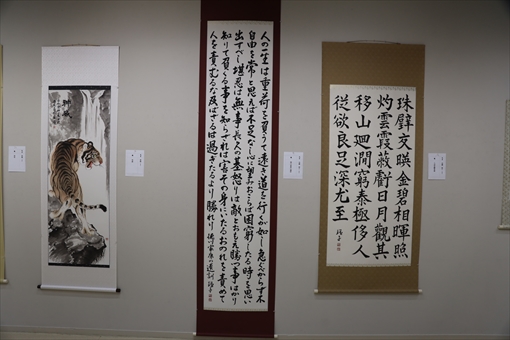 珠璧交暎金碧相暉照
灼雲霞蔽虧日月觀其
移山廻澗窮泰極侈人
從欲良足深尤至
人の一生は重荷を負うて遠き道を行くが如し急ぐべからず不
自由を常と思えば不足なし心に望みおこらば困窮したる時を思い
出すべし堪忍は無事長久の基怒りは敵とおもえ勝つ事ばかり
知りて負くる事を知らざれば害その身にいたるおのれを責めて
人を責むるな及ばざるは過ぎたるより勝れり 徳川家康の遺訓